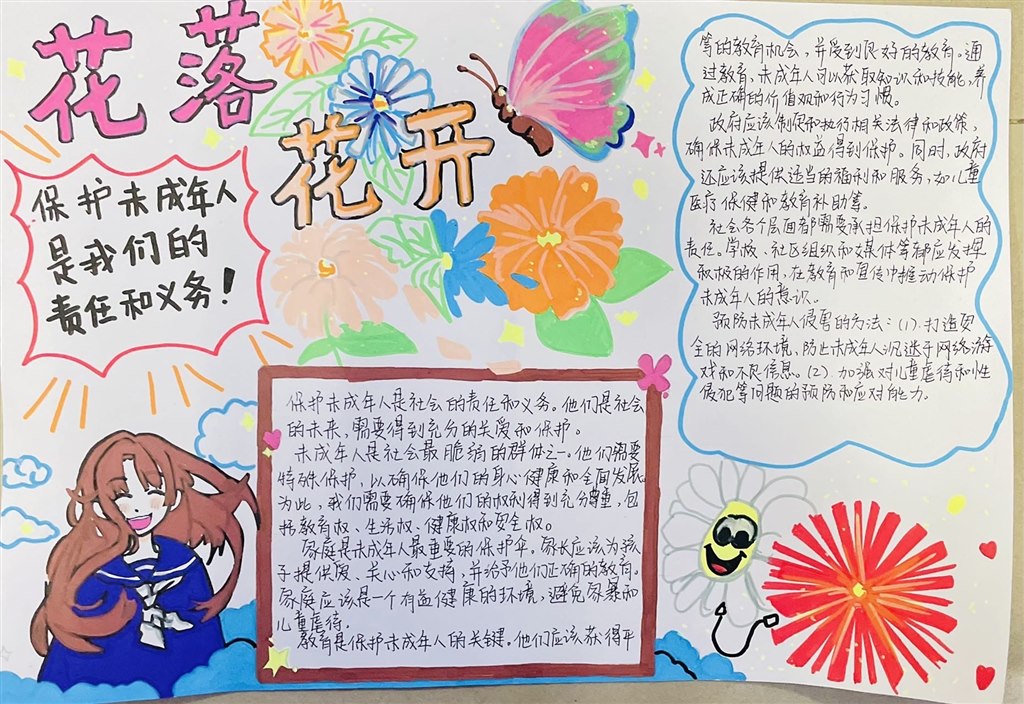 花落
花开
保护未成年人
是我们的
责任和义务!
保护未成年人是社会的责任和义务。他们是社会
的未来,需要得到充分的关爱和保护。
未成年人是社会最脆弱的群体之一。他们需要
特殊保护,以确保他们的身心健康和全面发展
为此,我们需要确保他们的权利得到充分尊重,包
括教育权、生活权、健康权和安全权。
家庭是未成年人最重要的保护伞。家长应该为孩
子提供爱、关心和支持,并给予他们正确的教育。
家庭应该是一个有益健康的环境,避免家暴和
儿童虐待。
教育是保护未成年人的关键。他们应该获得平
等的教育机会,并受到良好的教育。通
过教育,未成年人可以获取知识和技能,养
成正确的价值观和行为习惯。
政府应该制定和执行相关法律和政策,
确保未成年人的权益得到保护。同时,政府
还应该提供适当的福利和服务,如儿童
医疗保健和教育补助等。
社会各个层面都需要承担保护未成年人的
责任。学校、社区组织和媒体等都应发挥
积极的作用,在教育和宣传中推动保护
未成年人的意识。
预防未成年人侵害的方法:(1).打造安
全的网络环境、防止未成年人沉迷于网络游
戏和不良信息。(2).加强对儿童虐待和性
侵犯等问题的预防和应对能力。